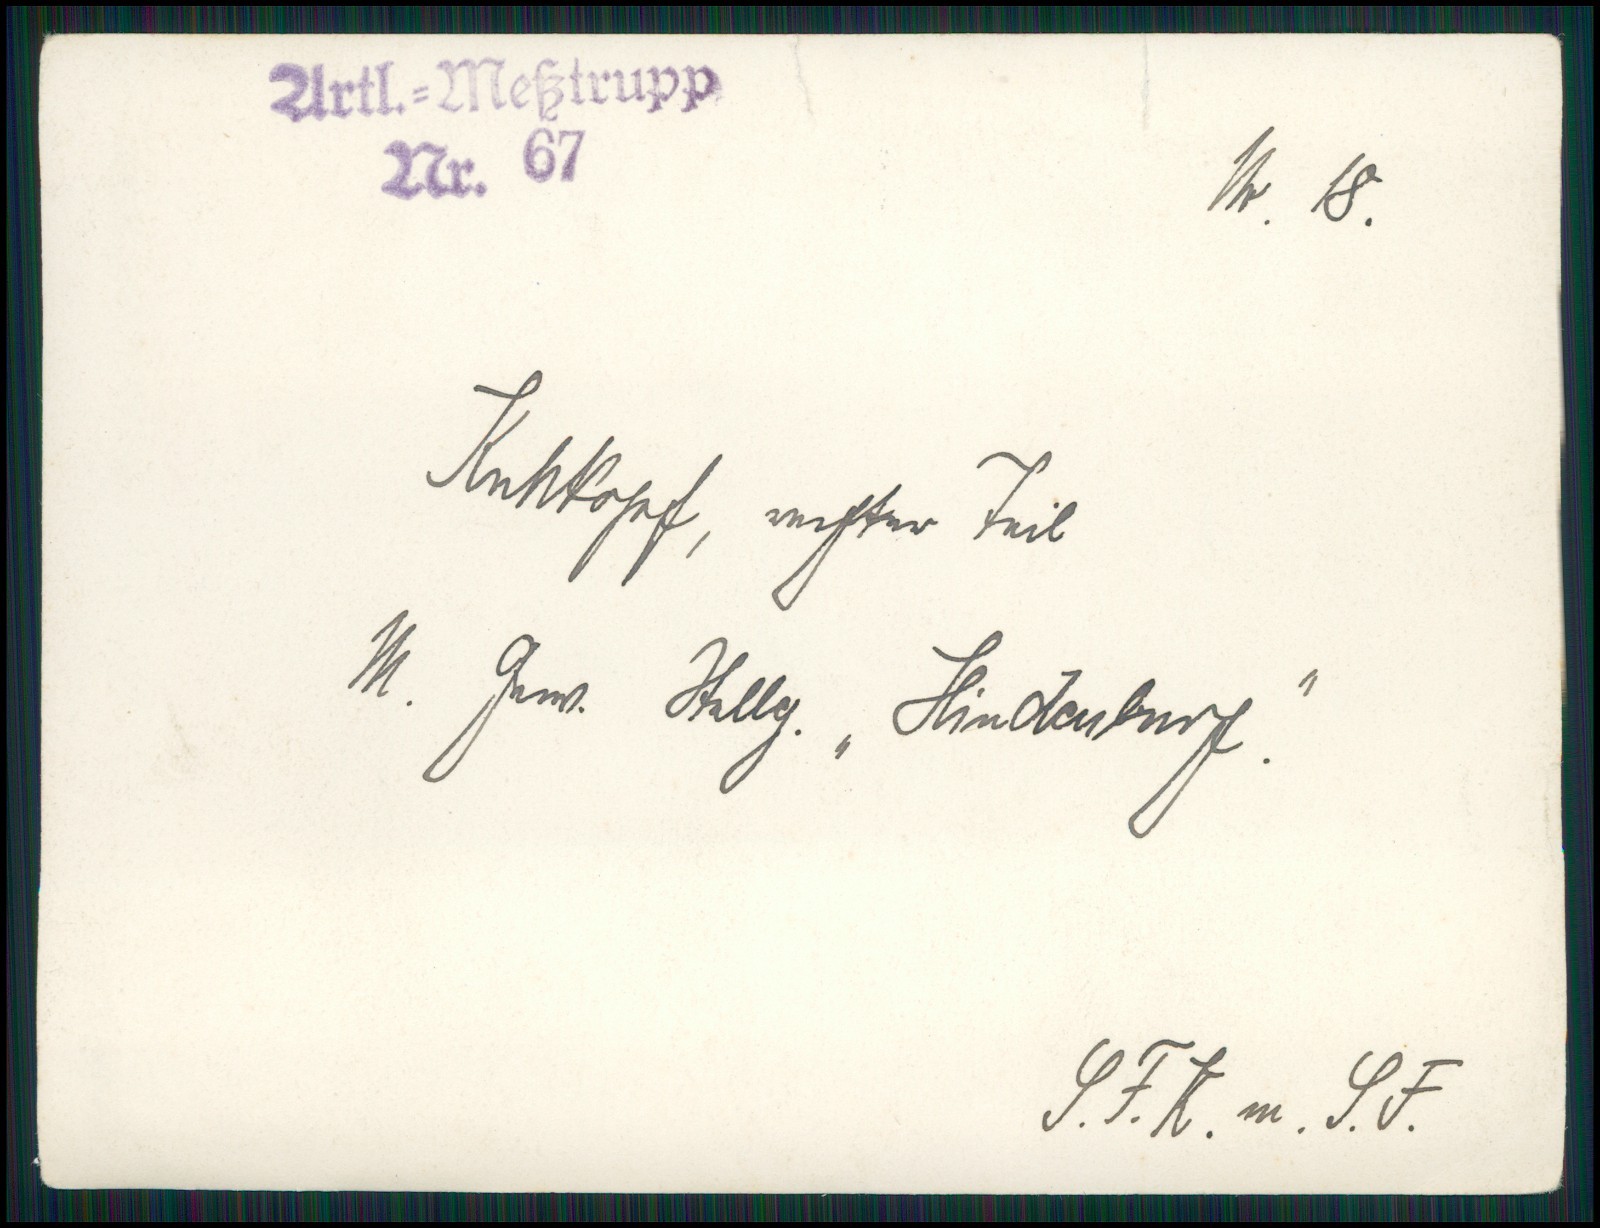 Artl.=Meßtrupp
Nr. 67
Nr. 18.
Kuhkopf, rechter Teil
M. Gew. Stellg. „Hindenburg."
S.F.K. m. S.F.